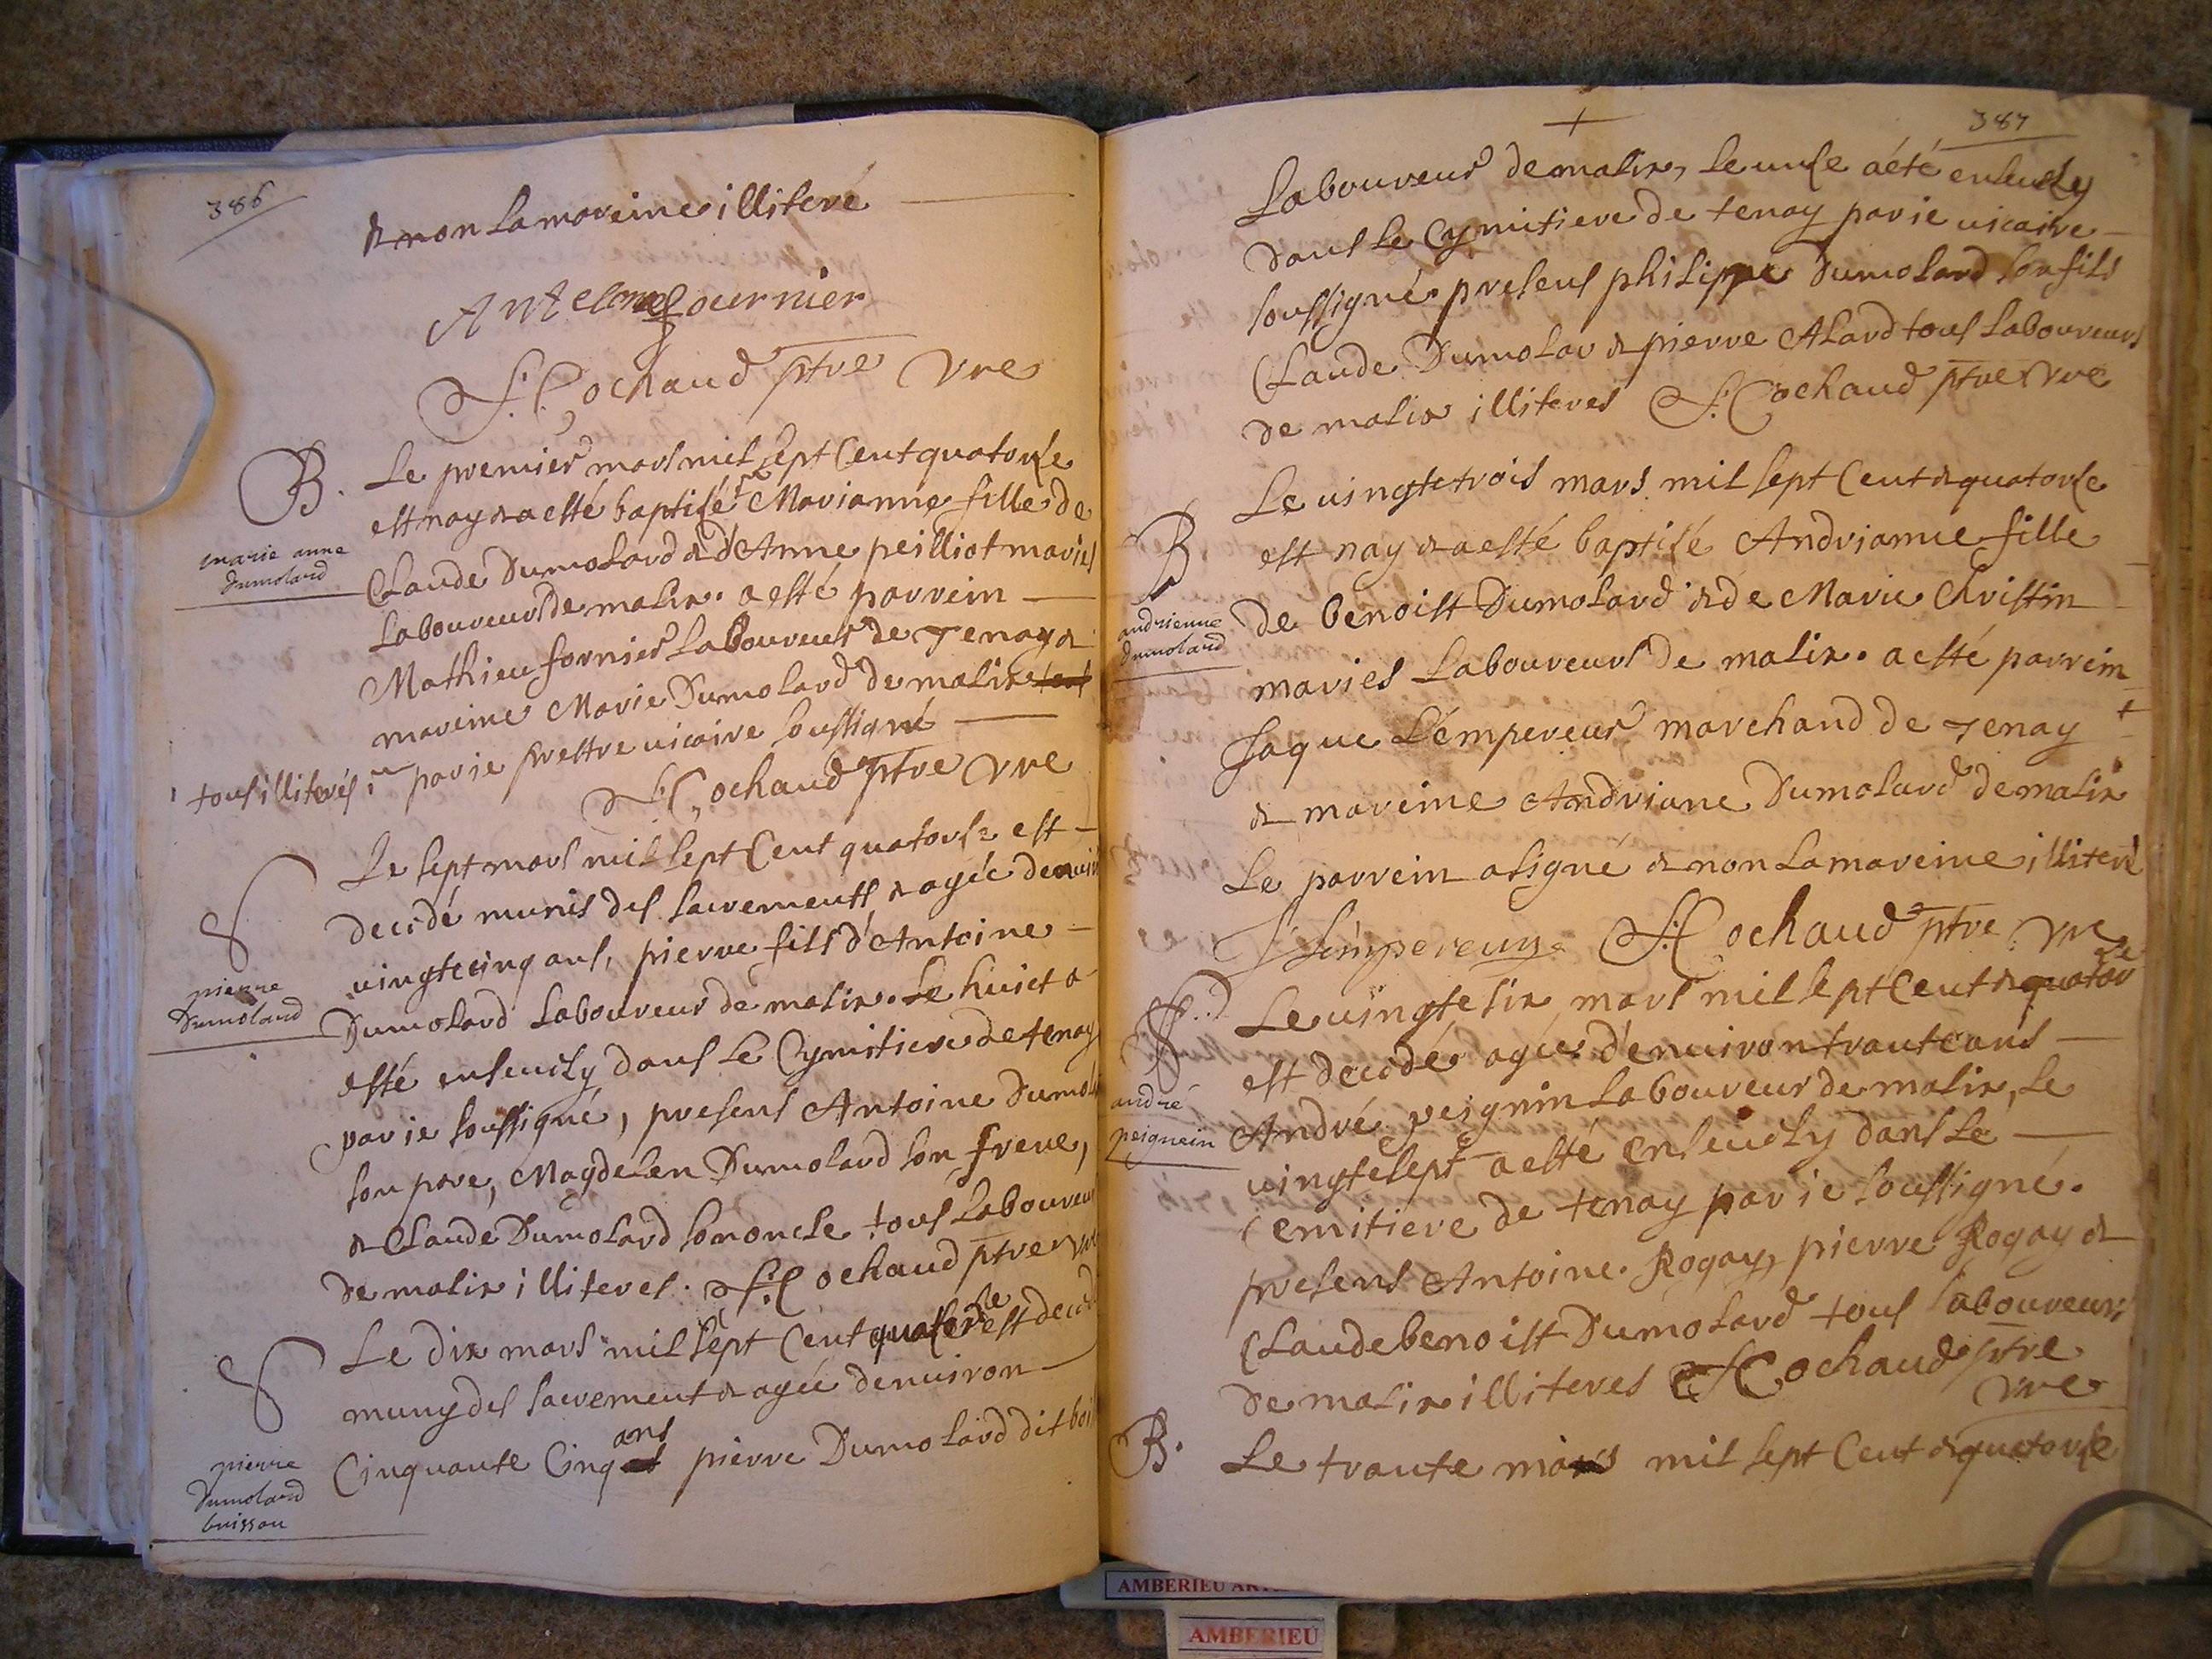 386
& non la mareine illiteré
Antelme fournier
F: Cochaud ptre vre
B. Le premier mars mil sept Cent quatorse
est nay & a esté baptisé Marianne fille de
marie anne dumolard
Claude Dumolard & d'Anne peilliot maries
Laboureurs de malix. a esté parrein
Mathieu fornier Laboureur de Tenay &
mareine Marie Dumolard de malix
tous illiterés; par ie prestre vicaire soussigné
F: Cochaud ptre vre
Le sept mars mil sept Cent quatorse est
decedé munis des sacrements & agée denuiron
vingtecinq ans, pierre fils d'Antoine
pierre Dumolard
Dumolard Laboureur de malix. Le huict a
esté enseuely dans Le Cymitiere de tenay
par ie soussigné, presens Antoine Dumolard
son pere, Magdelen Dumolard son frere,
& Claude Dumolard son oncle tous Laboureurs
de malix illiteres. F: Cochaud ptre vre
Le dix mars mil sept Cent quatorse est decedé
muny des sacrement & agée denuiron
Cinquante Cinq ans pierre Dumolard dit
pierre Dumolard buisson
387
Laboureur de malix, Le unse a été enseuely
dans Le Cymitiere de tenay par ie vicaire
soussigné presens philippe Dumolard son fils
Claude Dumolar & pierre Alard tous Laboureurs
de malix illiteres F: Cochaud ptre vre
Le vingtetrois mars mil sept Cent & quatorse
B est nay & a esté baptisé Andrianne fille
andrienne dumolard
de benoist Dumolard & de Marie Christin
maries Laboureurs de malix. a esté parrein
Jaque L'empereur marchand de Tenay
& mareine Andriane Dumolard de malix
Le parrein a signé & non la mareine illiteré
J Lempereur F: Cochaud ptre vre
Le vingtesix mars mil sept Cent & quatorse
est decedé agée denuiron trante ans
andré peignein
André peignin Laboureur de malix, Le
vingtesept a esté enseuely dans Le
Cemitiere de tenay par ie soussigné.
presens Antoine Rogay, pierre Rogay &
Claude benoist Dumolard tous Laboureurs
de malix illiteres F: Cochaud ptre
vre
B. Le trante mars mil sept Cent & quatorse
AMBERIEU
AMBERIEU